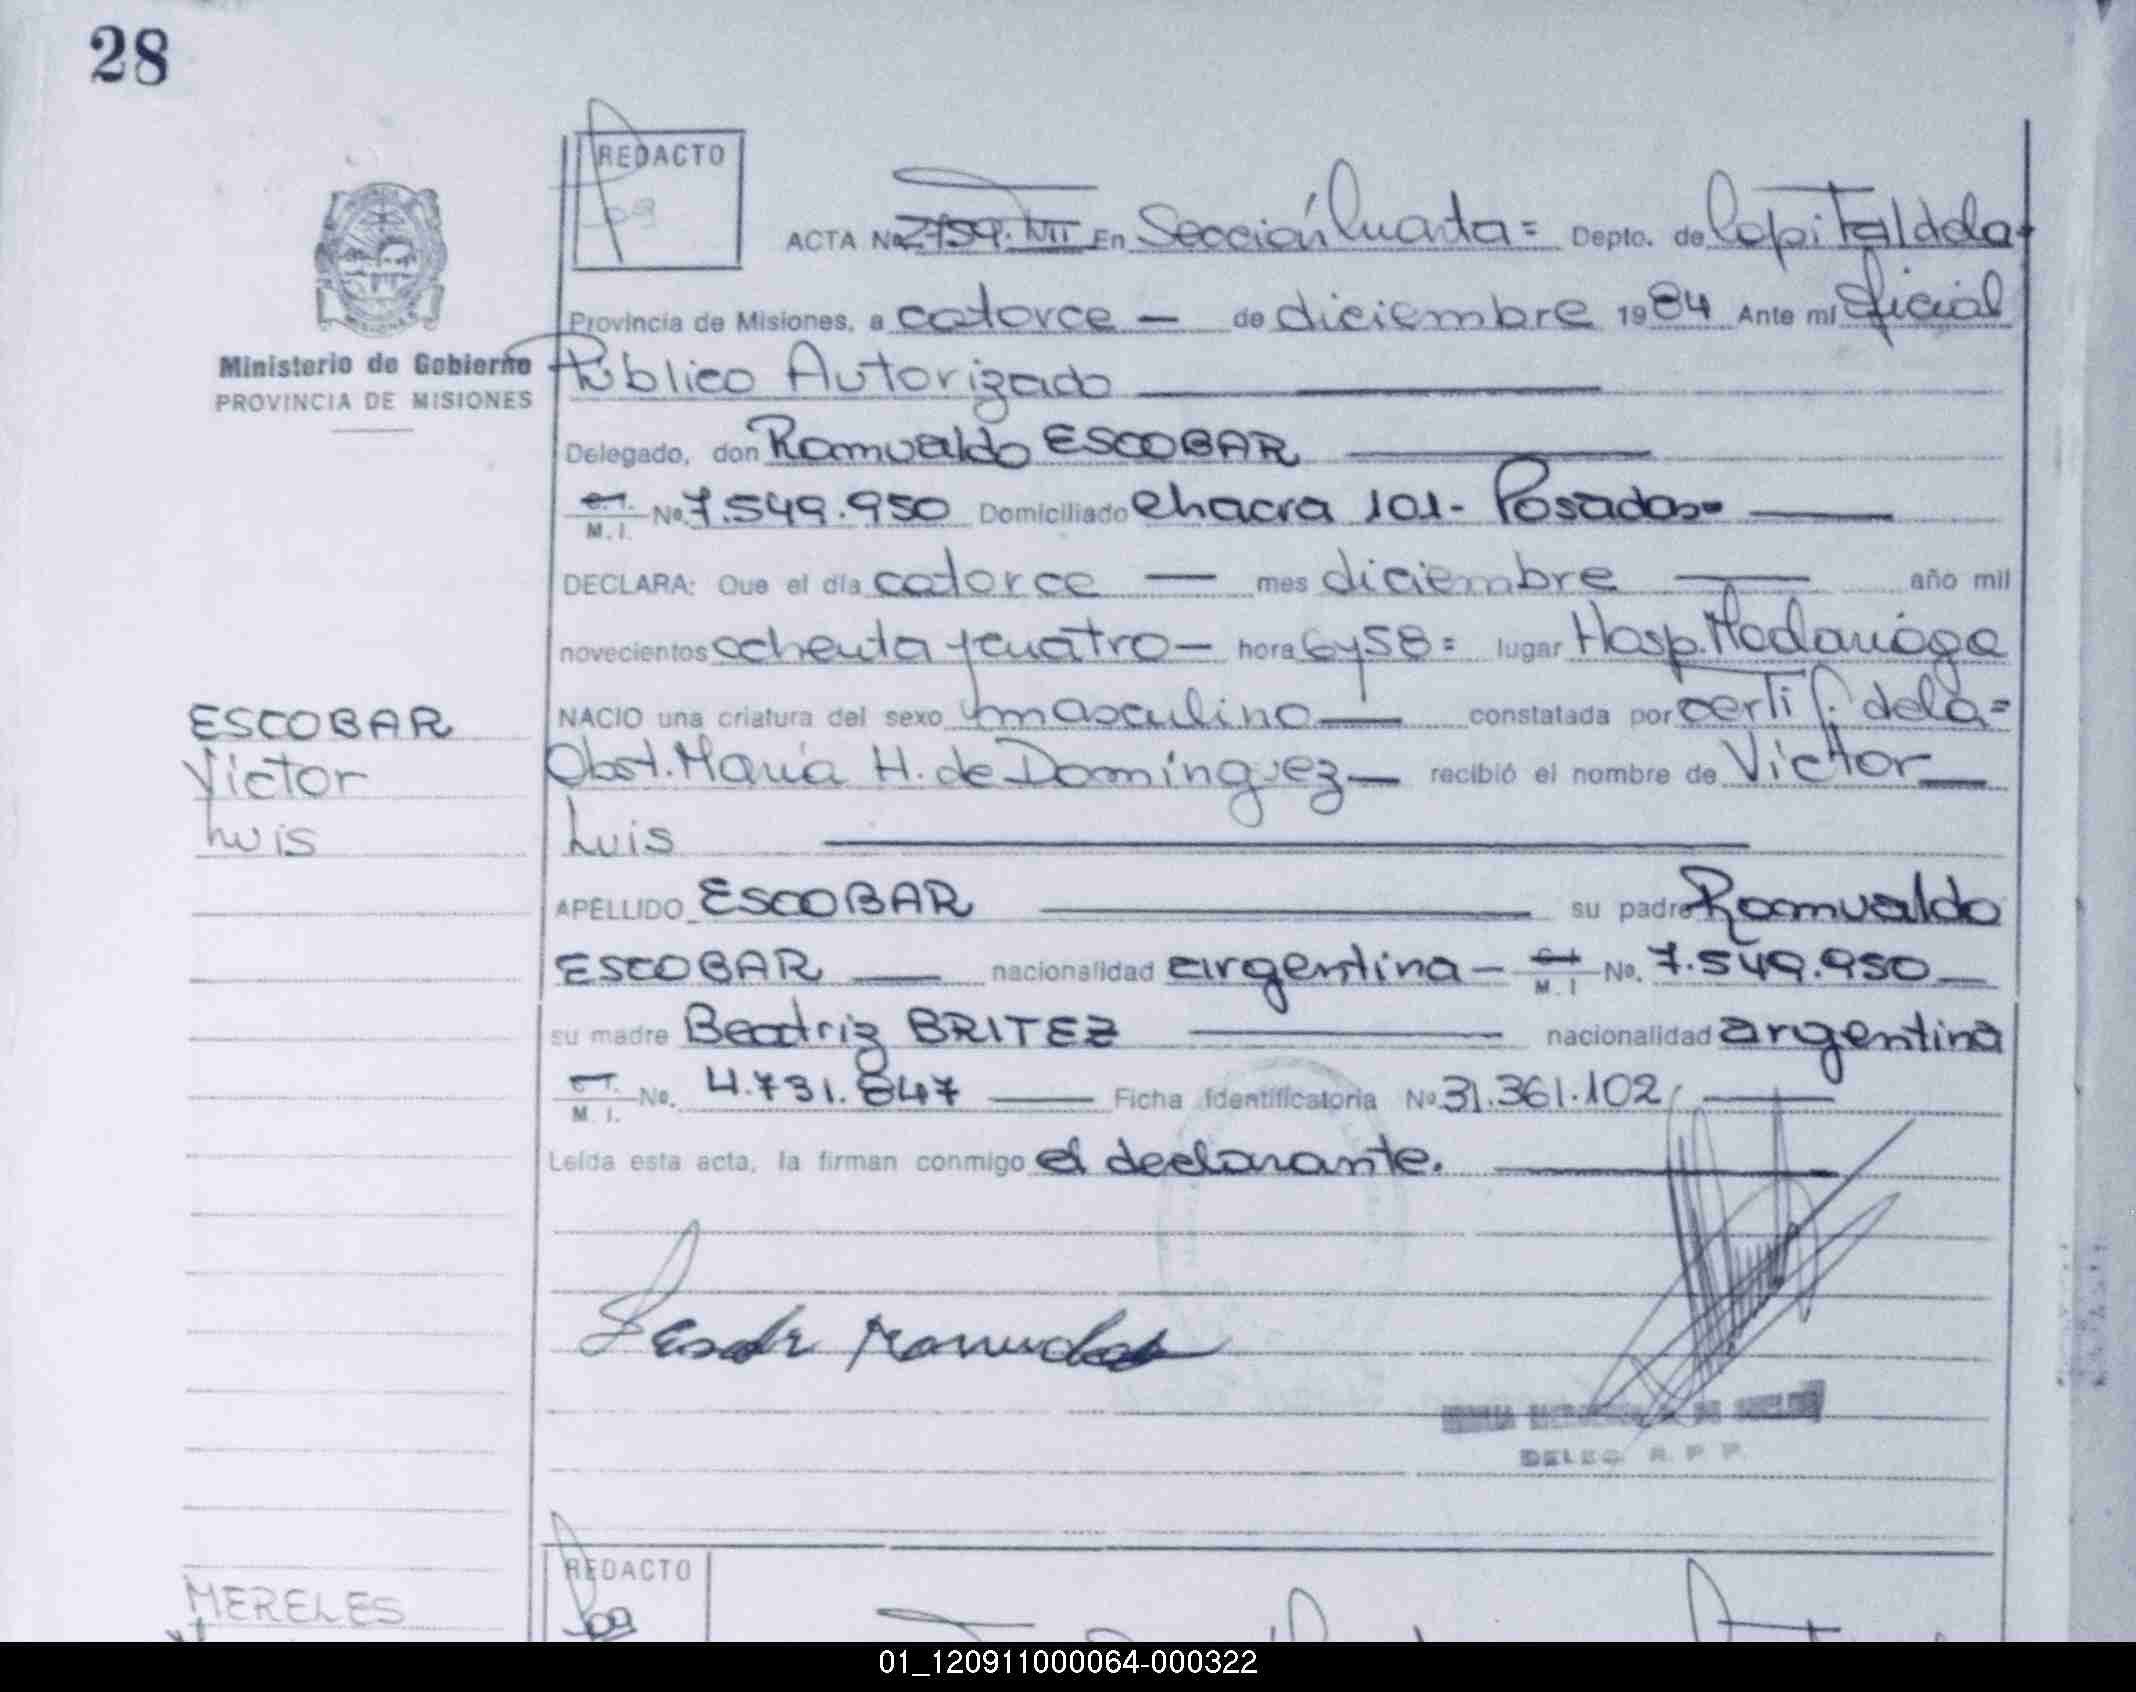 28
REDACTO
ACTA No 2759. VII En Sección Cuarta = Depto. de Capital dela
Provincia de Misiones, a catorce — de diciembre 1984 Ante mí Oficial
Ministerio de Gobierno
PROVINCIA DE MISIONES
Público Autorizado
Delegado, don Romualdo ESCOBAR
M. I. No. 7.549.950 Domiciliado chacra 101 - Posadas =
DECLARA: Que el día catorce — mes diciembre — año mil
novecientos ochenta y cuatro — hora 6 y 58 = lugar Hosp. Madariaga
NACIO una criatura del sexo masculino — constatada por certif. dela =
Obst. María H. de Domínguez — recibió el nombre de Victor —
Luis
ESCOBAR
Victor
Luis
APELLIDO ESCOBAR su padre Romualdo
ESCOBAR — nacionalidad argentina — M. I No. 7.549.950 —
su madre Beatriz BRITEZ nacionalidad argentina
M. I. No. 4.731.847 — Ficha Identificatoria No 31.361.102
Leída esta acta, la firman conmigo el declarante.
DELEG. R. P. P.
MERELES
REDACTO
01_120911000064-000322